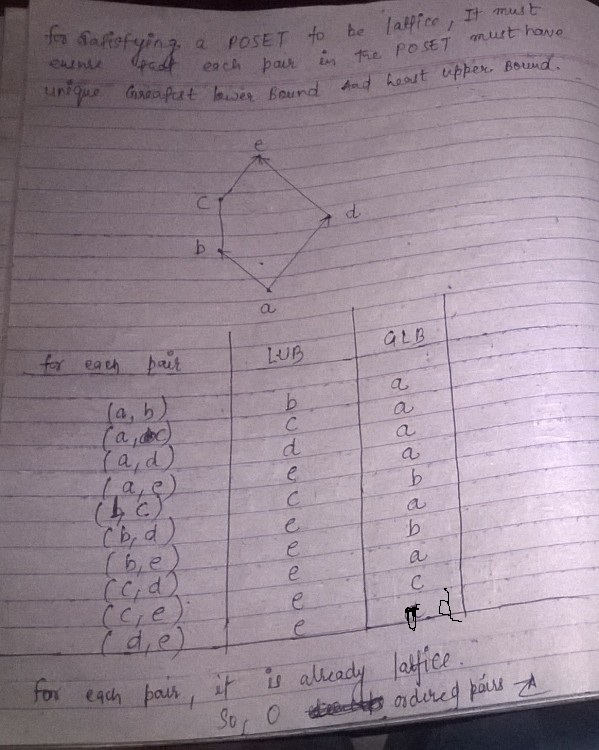 for satisfying a POSET to be lattice, It must
ensure that each pair in the POSET must have
unique Greatest lower Bound and least upper Bound.
e
c
d
b
a
for each pair LUB GLB
(a, b) b a
(a, c) c a
(a, d) d a
(a, e) e a
(b, c) c b
(b, d) e a
(b, e) e b
(c, d) e a
(c, e) e c
(d, e) e d
for each pair, it is already lattice.
So, 0 ordered pairs